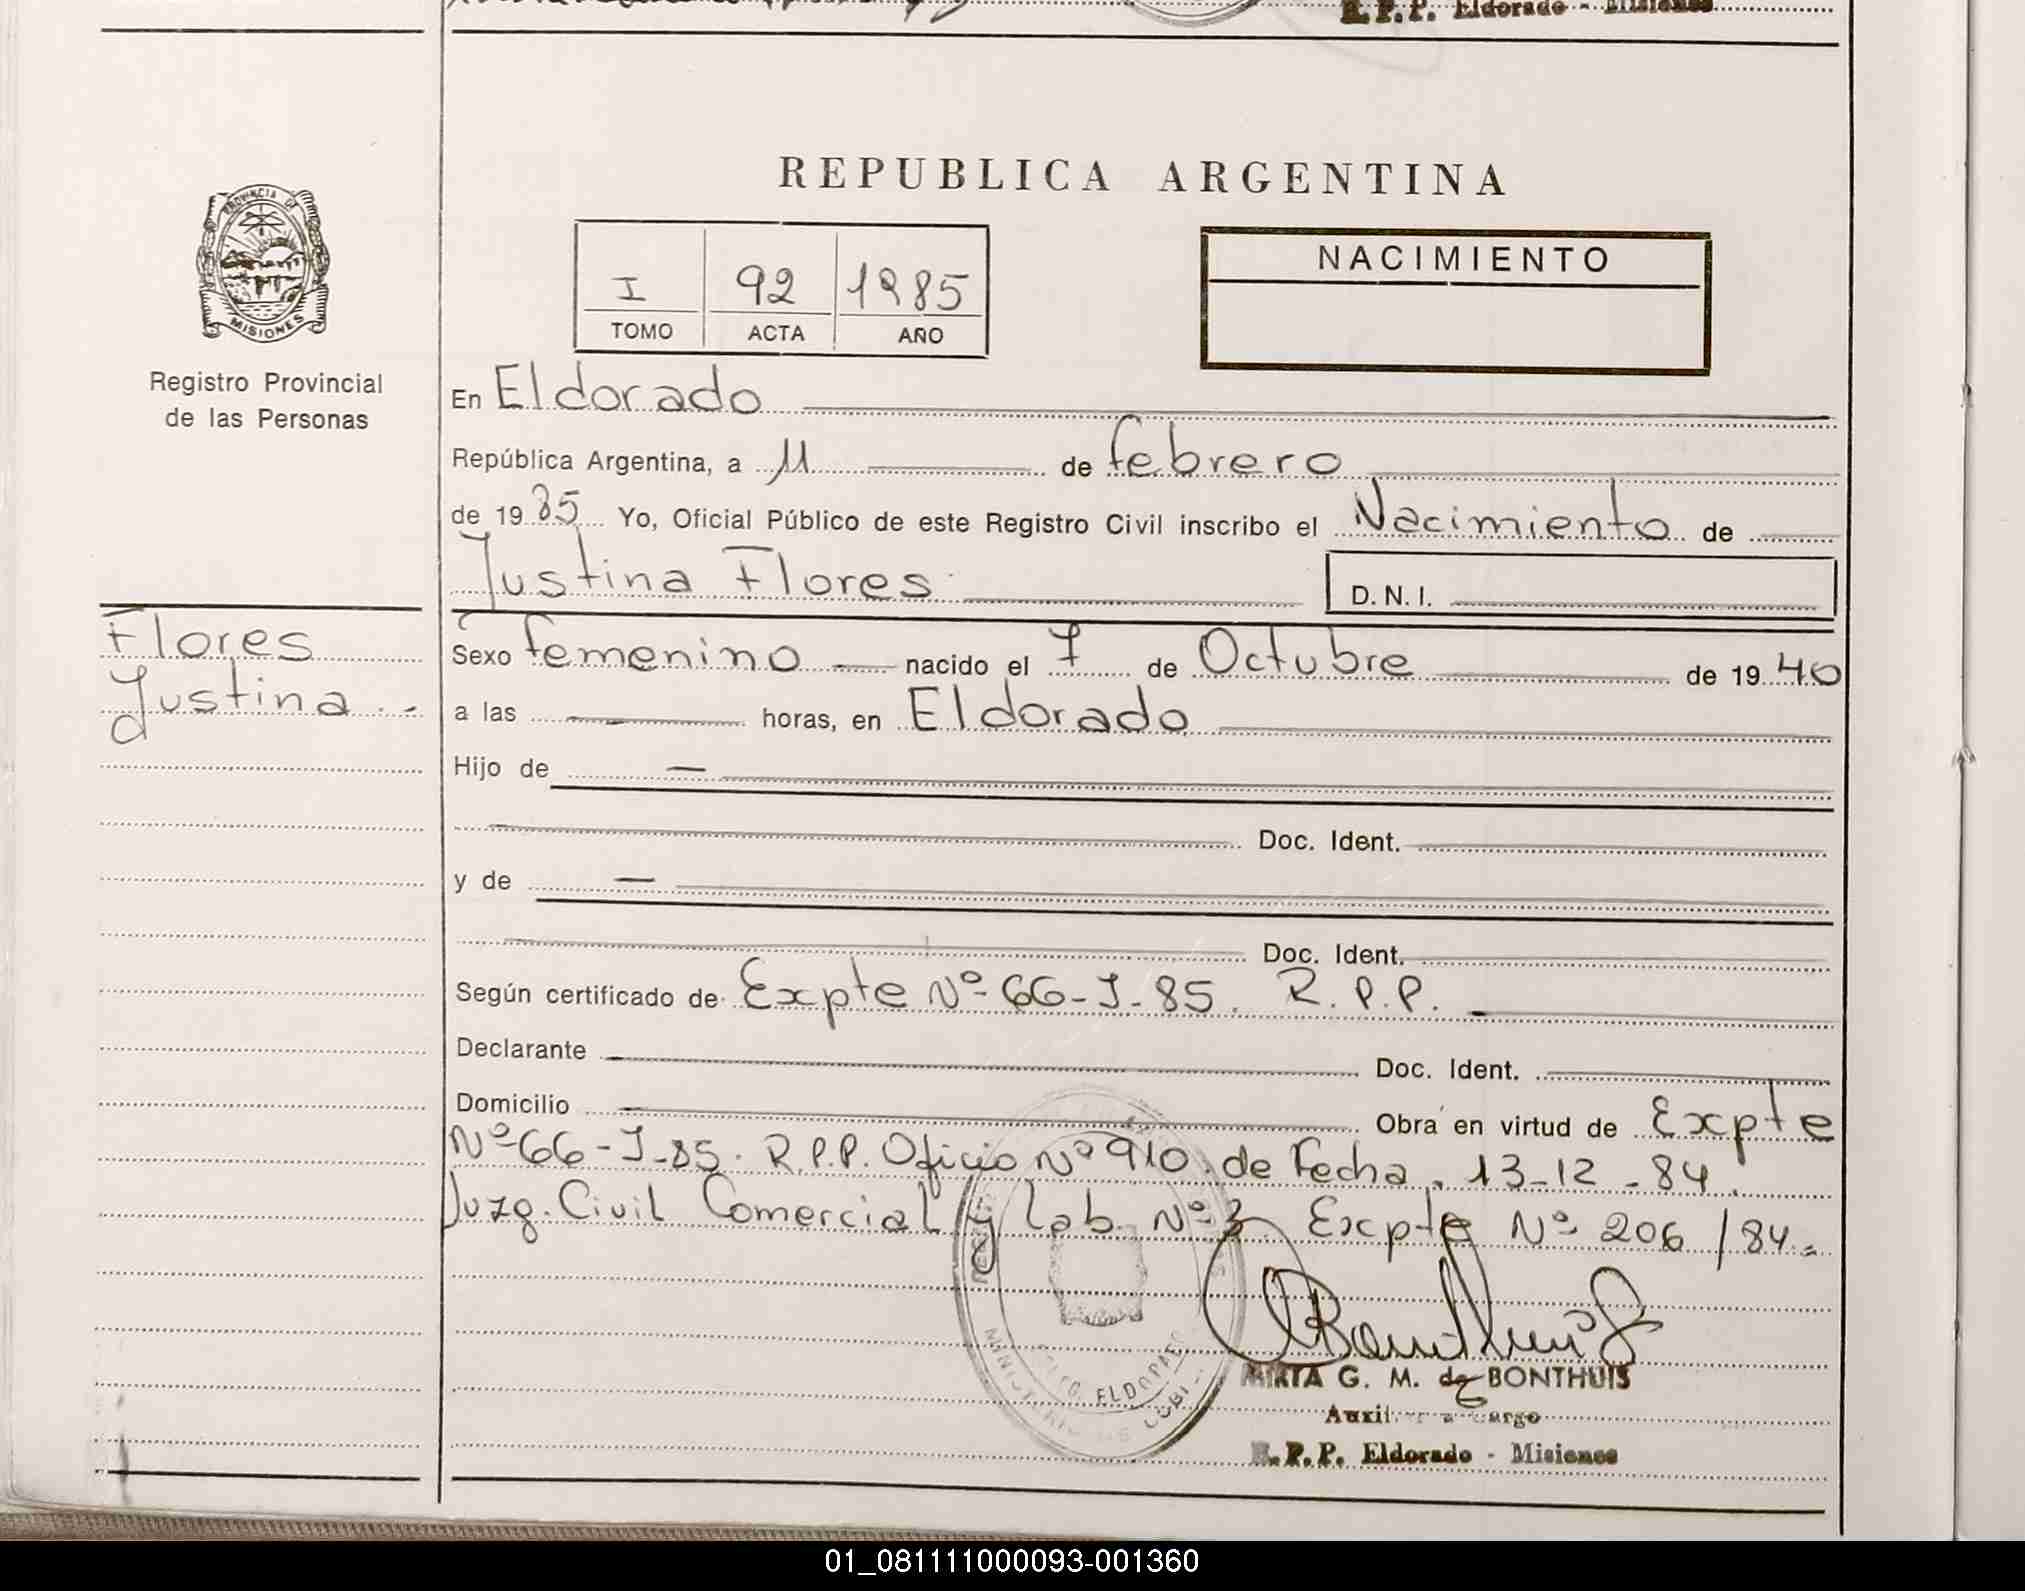 R. P. P. Eldorado - Misiones
REPUBLICA ARGENTINA
PROVINCIA DE
MISIONES
Registro Provincial
de las Personas
I 92 1985
TOMO ACTA AÑO
NACIMIENTO
En Eldorado
República Argentina, a 11 de febrero
de 19 85 Yo, Oficial Público de este Registro Civil inscribo el Nacimiento de
Justina Flores
D. N. I.
Flores
Justina.-
Sexo femenino nacido el 7 de Octubre de 19 40
a las horas, en Eldorado
Hijo de
Doc. Ident.
y de
Doc. Ident.
Según certificado de Expte Nº 66-J-85. R.P.P.
Declarante Doc. Ident.
Domicilio Obra en virtud de Expte
Nº 66-J-85. R.P.P. Oficio Nº 910. de Fecha. 13-12-84.
Juzg. Civil Comercial y Lab. Nº Expte Nº 206/84.-
ELDORADO
MIRTA G. M. de BONTHUIS
Auxiliar a Cargo
R. P. P. Eldorado - Misiones
01_081111000093-001360